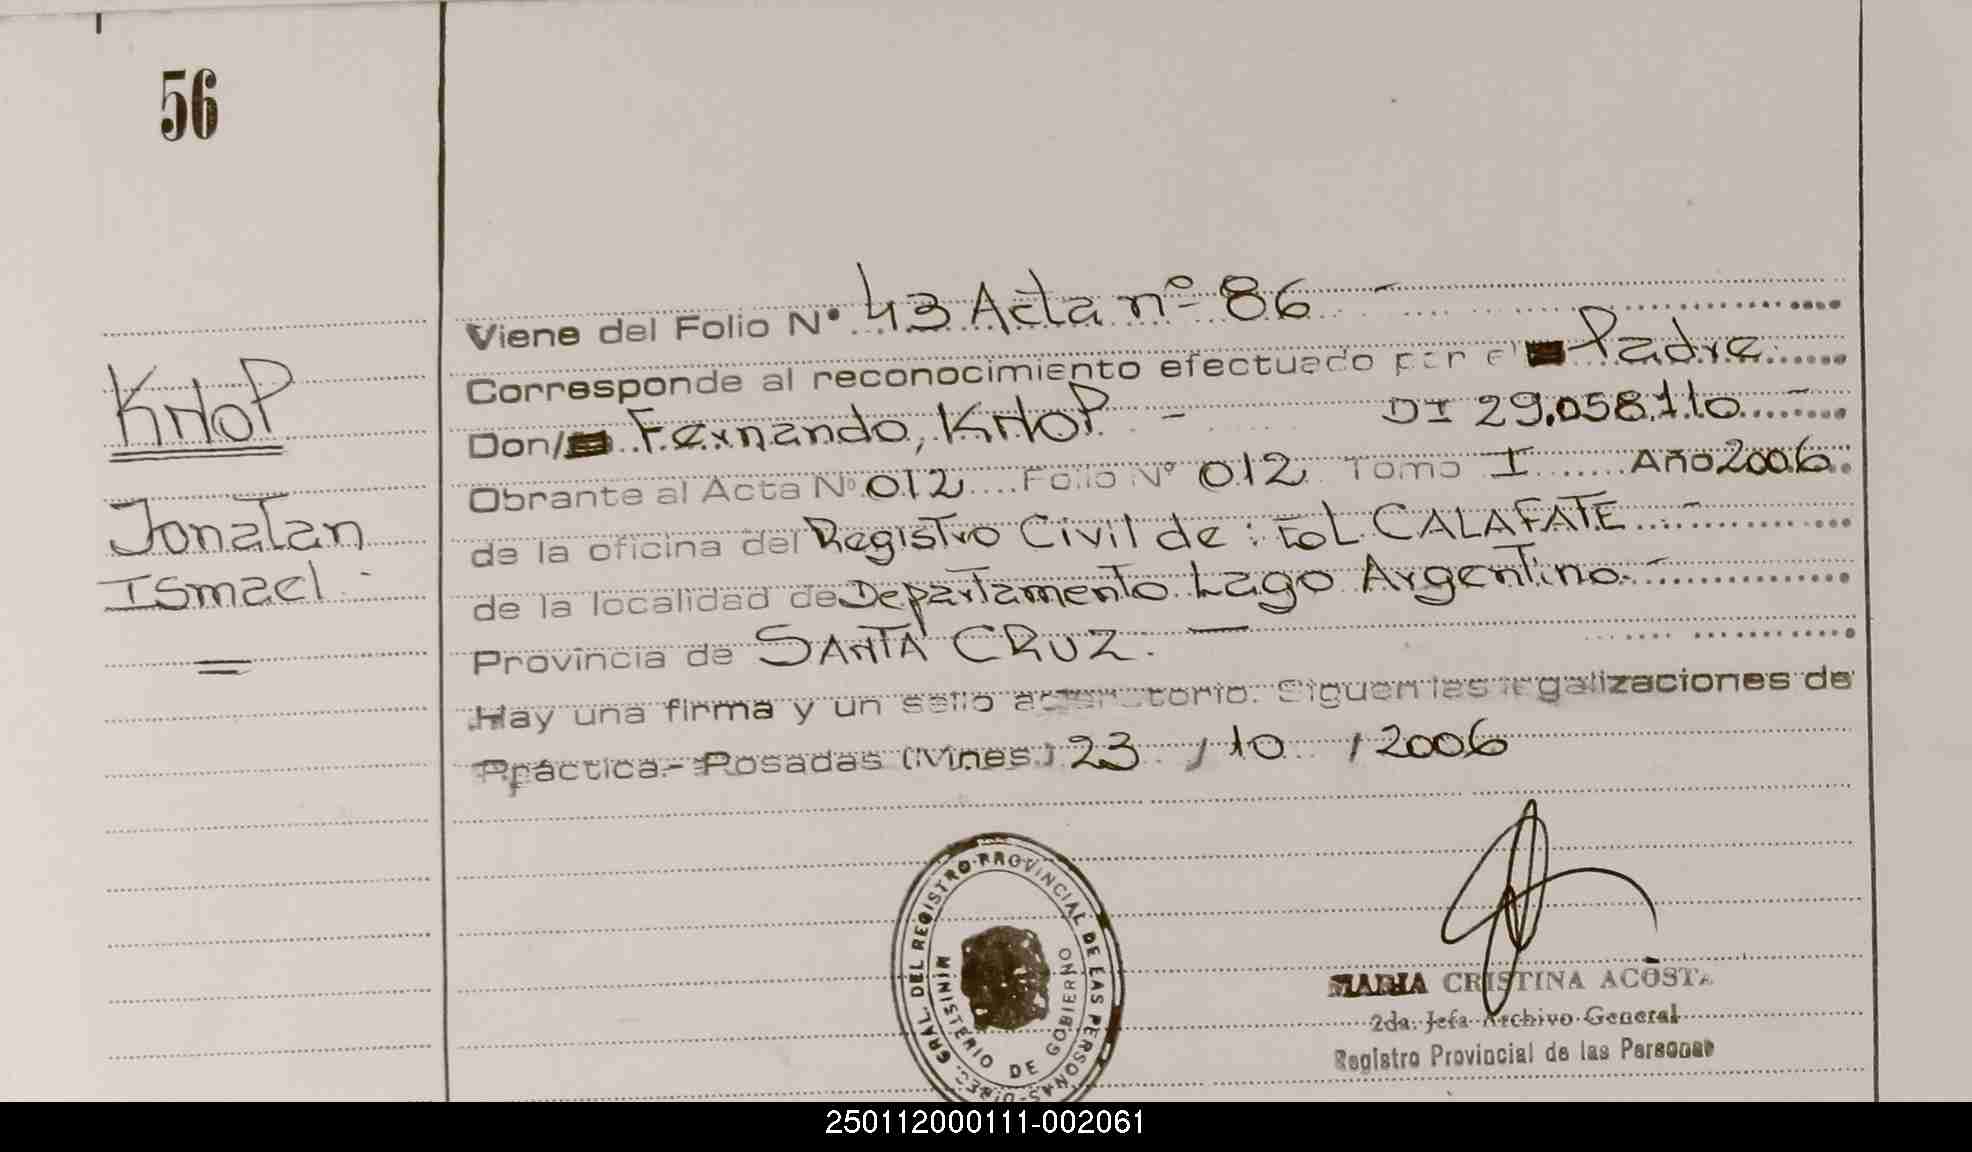 56
Viene del Folio Nº 43 Acta nº 86
Corresponde al reconocimiento efectuado por el Padre
Don/ Fernando, KNOP - DI 29.058.110 -
Obrante al Acta Nº 012 Folio Nº 012 Tomo I Año 2006
de la oficina del Registro Civil de : EL CALAFATE -
de la localidad de Departamento Lago Argentino. -
Provincia de SANTA CRUZ. -
Hay una firma y un sello aclaratorio. Siguen las legalizaciones de
Práctica.- Posadas (Mnes.) 23 / 10 / 2006
KNOP
Jonatan
Ismael. -
DIREC. GRAL. DEL REGISTRO PROVINCIAL DE LAS PERSONAS
MINISTERIO DE GOBIERNO
MARIA CRISTINA ACOSTA
2da. Jefa Archivo General
Registro Provincial de las Personas
250112000111-002061